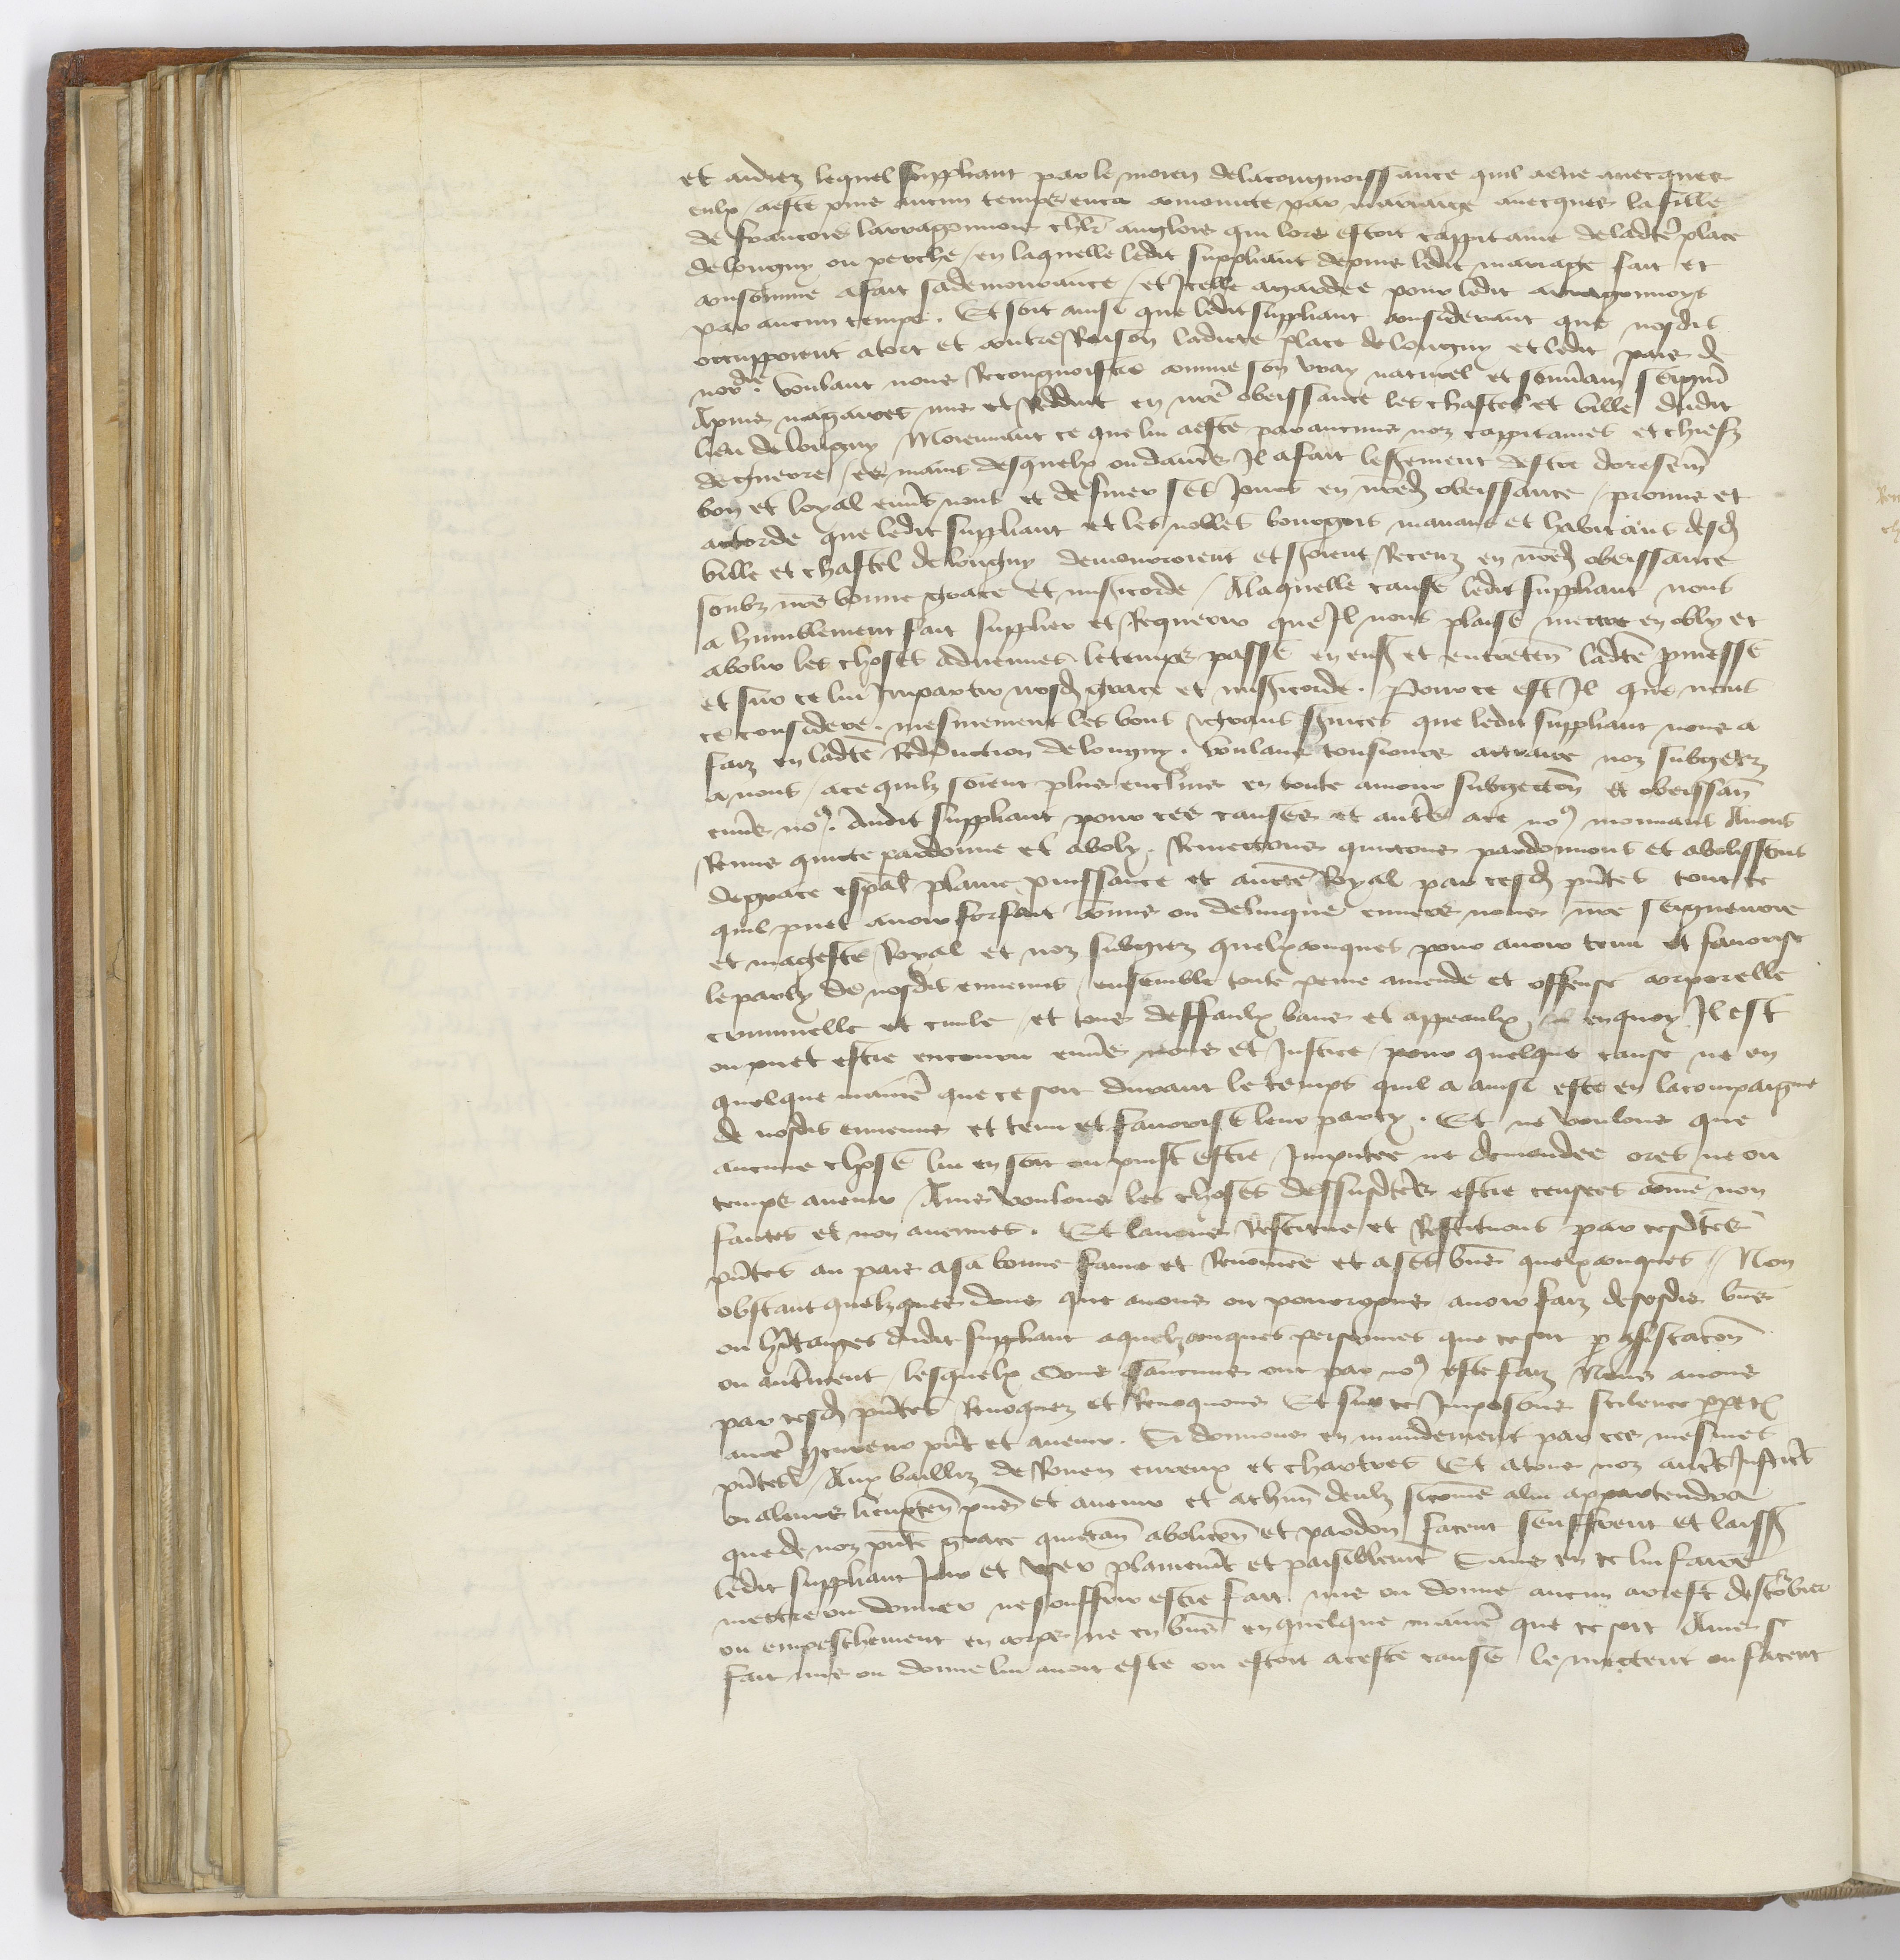 et aidiez lequel suppliant par le moien delacongnoissance quil aeue avecques
eulx / aeste puis aucun temps enca conioincte par mariaige avecques la fille
de francois larragonnois chlr anglois qui lors estoit cappitaine deladte place
de longny ou perche / en laquelle ledit suppliant depuis ledit mariage fait et
consomme afait sademourance / et Icelle agardee pour ledit arragonnoys
par aucun temps . Et soit ainsi que ledit suppliant considerant que nosdis
occuppoient atort et contre Raison ladicte place de longny et ledit pais de
nordie . voulant nous Recongnoistre comme son vray naturel et souuain seigneur
Apuis nagaires mis et Redduit en nre obeissance les chastel et ville dudit
lieu de longny Moiennant ce que lui aeste par aucuns noz cappitaines et chiefz
deguerre / es mains desquelx ou dautres Il afait le sement destre doresen
bon et loyal enuers nous et de finer ses jours en nred obeissance / promis et
accorde que ledit suppliant et les nobles bourgois manans et habitans desd
ville et chastel delongny demourroient et soient Receuz en nred obeissance
soubz nre bonne grace et misicorde / Alaquelle cause ledit suppliant nous
a humblement fait supplier et Requerir que Il nous plaise mettre en obly et
abolir les choses aduenues letemps passe en ens et entreten ladte pmesse
et sur ce lui Impartir nosd grace et misicorde . Pour ce est Il que nous
ce considere . mesmement les bons et grans suices que ledit suppliant nous a
faiz en ladte Redduction delongny . voulans tousiours attraire noz subgetz
a nous / ace quilz soient plus enclins en toute amour subgection et obeissan
enuers no9 . Audit suppliant pour ces causes et autres ace no9 mouuans Auons
Remis quicte pardonne et aboly . Remectons quictons pardonnons et abolissons
degrace espal plaine puissance et aucte Royal par cesd pntes tout ce
quil puet auoir forfait comis ou delinque enuers nous nre seigneurie
et mageste Royal et noz subgiez quelxconques pour auoir tenu et fauorise
leparty de nosdis ennemis / ensemble toute peine amende et offense corporelle
criminelle et ciuile / et tous deffaulx bans et appeaulx enquoy Il est
ou puet estre encouru enuers nous et Justice / pour quelque cause ne en
quelque manie que ce soit durant le temps quil a ainsi este en lacompaignie
de nosdis ennemis et tenu et fauorise leur party . Et ne voulons que
aucune chose lui en soit ou puist estre Imputee ne demandee ores ne ou
temps auenir / Ains voulons les choses dessusdtes estre censees come non
faictes et non auenues . Et lauons Restitue et Restituons par cesdtes
pntes au pais asa bonne fame et Renomee et ases biens quelxconques // Non
obstant quelzques dons que auons ou pourrions auoir faiz desesdis biens
ou hitaiges dudit suppliant aquelzconques personnes que ce soit p confiscacon
ou autrement / lesquelx dons saucuns ont par no9 este faiz Nous auons
par cesd pntes Reuoquez et Reuoquons Et sur ce Imposons scilence ppetl
anre procureur pnt et auenir . Si donnons en mandement par ces mesmes
pntes / Aux bailliz de Rouen eureux et chartres Et atous noz autres Justiciers
ou aleurs lieuxten pns et auenir et achun deulz sicome alui appartendra
que de noz pnte grace quictan abolicon et pardon facent seuffrent et laiss
ledit suppliant Joir et user plainemt et paisiblemt Sans en ce lui faire
mettre ou donner nesouffrir estre fait mis ou donne aucun arrest destorbier
ou empeschement en corps ne en biens enquelque manie que ce soit Ains se
fait mis ou donne lui auoit este ou estoit aceste cause le mettent ou facent